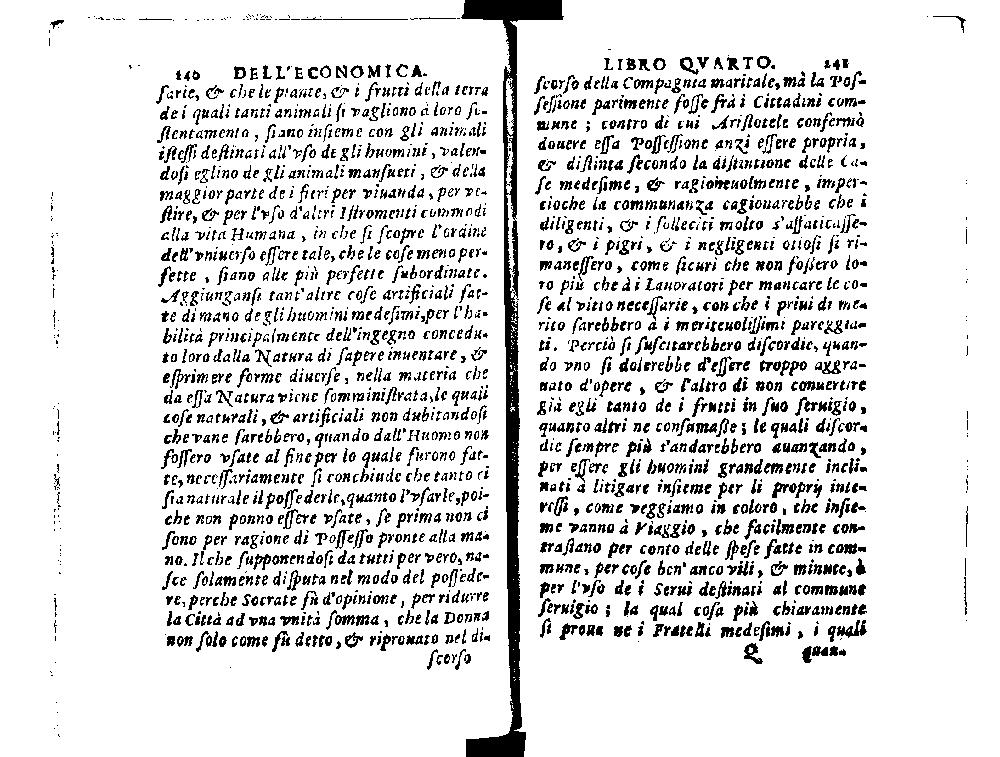 140 DELL'ECONOMICA.
ſarie, & che le piante, & i frutti della terra
de i quali tanti animali ſi vagliono à loro ſu-
ſtentamento, ſiano inſieme con gli animali
iſteſſi deſtinati all'vſo de gli huomini, valen-
doſi eglino de gli animali manſueti, & della
maggior parte de i fieri per viuanda, per ve-
ſtire, & per l'vſo d'altri Iſtromenti commodi
alla vita Humana, in che ſi ſcopre l'ordine
dell'vniuerſo eſſere tale, che le coſe meno per-
fette, ſiano alle più perfette ſubordinate.
Aggiunganſi tant'altre coſe artificiali fat-
te di mano de gli huomini medeſimi, per l'ha-
bilità principalmente dell'ingegno concedu-
to loro dalla Natura di ſapere inuentare, &
eſprimere forme diuerſe, nella materia che
da eſſa Natura viene ſomminiſtrata, le quali
coſe naturali, & artificiali non dubitandoſi
che vane ſarebbero, quando dall'Huomo non
foſſero vſate al fine per lo quale furono fat-
te, neceſſariamente ſi conchiude che tanto ci
ſia naturale il poſſederle, quanto l'vſarle, poi-
che non ponno eſſere vſate, ſe prima non ci
ſono per ragione di Poſſeſſo pronte alla ma-
no. Il che ſupponendoſi da tutti per vero, na-
ſce ſolamente diſputa nel modo del poſſede-
re, perche Socrate fù d'opinione, per ridurre
la Città ad vna vnità ſomma, che la Donna
non ſolo come fù detto, & riprouato nel di-
ſcorſo
LIBRO QVARTO. 241
ſcorſo della Compagnia maritale, mà la Poſ-
ſeſſione parimente foſſe frà i Cittadini com-
mune; contro di cui Ariſtotele confermò
douere eſſa Poſſeſſione anzi eſſere propria,
& diſtinta ſecondo la diſtintione delle Ca-
ſe medeſime, & ragioneuolmente, imper-
cioche la communanza cagionarebbe che i
diligenti, & i ſolleciti molto s'affaticaſſe-
ro, & i pigri, & i negligenti otioſi ſi ri-
maneſſero, come ſicuri che non foſſero lo-
ro più che à i Lauoratori per mancare le co-
ſe al vitto neceſſarie, con che i priui di me-
rito ſarebbero à i meriteuoliſſimi pareggia-
ti. Perciò ſi ſuſcitarebbero diſcordie, quan-
do vno ſi dolerebbe d'eſſere troppo aggra-
uato d'opere, & l'altro di non conuertire
già egli tanto de i frutti in ſuo ſeruigio,
quanto altri ne conſumaſſe; le quali diſcor-
die ſempre più s'andarebbero auanzando,
per eſſere gli huomini grandemente incli-
nati à litigare inſieme per li proprij inte-
reſſi, come veggiamo in coloro, che inſie-
me vanno à Viaggio, che facilmente con-
traſtano per conto delle ſpeſe fatte in com-
mune, per coſe ben' anco vili, & minute, ò
per l'vſo de i Serui deſtinati al commune
ſeruigio; la qual coſa più chiaramente
ſi proua ne i Fratelli medeſimi, i quali
Q quan-